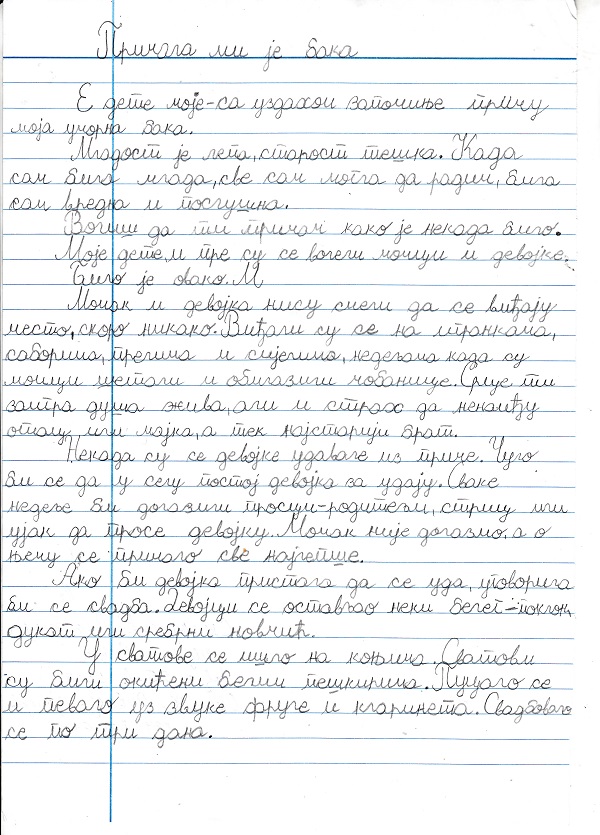 Причала ми је бака
Е дете моје-са уздахом започиње причу
моја уморна бака.
Младост је лепа, старост тешка. Када
сам била млада, све сам могла да радим, била
сам вредна и послушна.
Волиш да ти причам како је некада било.
Моје дете, и пре су се волели момци и девојке.
Било је овако. М
Момак и девојка нису смели да се виђају
често, скоро никако. Виђали су се на игранкама,
саборима, прелима и сијелима, недељама када су
момци шетали и обилазили чобанице. Срце ти
заигра душа жива, али и страх да ненаиђу
отац или мајка, а тек најстарији брат.
Некада су се девојке удавале из приче. Чуло
би се да у селу постој девојка за удају. Сваке
недеље би долазили просци-родитељи, стриц или
ујак да просе девојку. Момак није долазио, а о
њему се причало све најлепше.
Ако би девојка пристала да се уда, уговорила
би се свадба. Девојци се остављао неки белег-поклон,
дукат или сребрни новчић.
У сватове се ишло на коњима. Сватови
су били окићени белим пешкирима. Пуцало се
и певало уз звуке фруле и кларинета. Свадбовало
се по три дана.